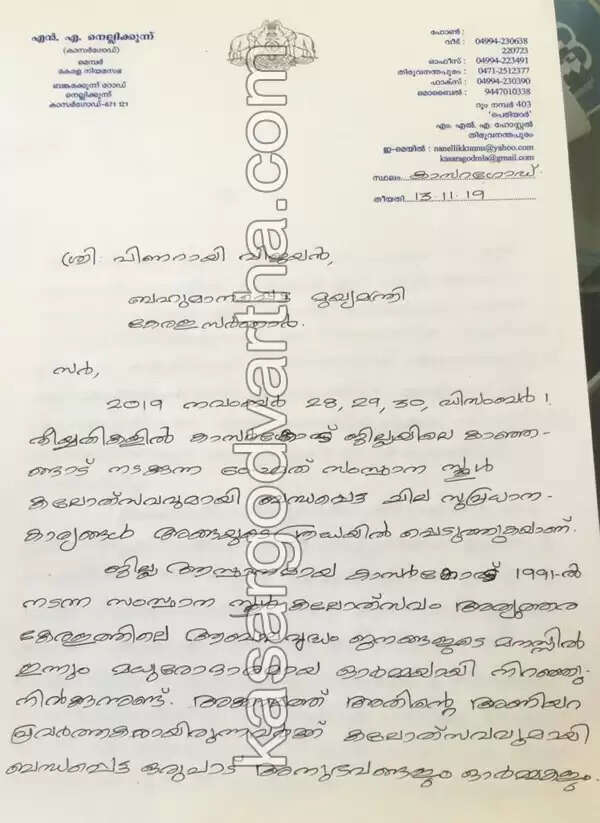 എൻ. എ. നെല്ലിക്കുന്ന്
(കാസർഗോഡ്)
മെമ്പർ
കേരള നിയമസഭ
ബങ്കരക്കുന്ന് റോഡ്
നെല്ലിക്കുന്ന്
കാസർഗോഡ്-671 121
ഫോൺ :
വീട് : 04994-230638
220723
ഓഫീസ് : 04994-223491
തിരുവനന്തപുരം : 0471-2512377
ഫാക്സ് : 04994-230390
മൊബൈൽ : 9447010338
റൂം നമ്പർ 403
'പെരിയാർ'
എം. എൽ. എ. ഹോസ്റ്റൽ
തിരുവനന്തപുരം
ഇ-മെയിൽ : nanellikkunnu@yahoo.com
kasaragodmla@gmail.com
സ്ഥലം കാസറഗോഡ്
തീയതി 13.11.19
ശ്രീ. പിണറായി വിജയൻ,
ബഹുമാനപ്പെട്ട മുഖ്യമന്ത്രി
കേരള സർക്കാർ.
സർ,
2019 നവംബർ 28, 29, 30, ഡിസംബർ 1
തീയ്യതികളിൽ കാസർകോട് ജില്ലയിലെ കാഞ്ഞ-
ങ്ങാട് നടക്കുന്ന 60-ാമത് സംസ്ഥാന സ്കൂൾ
കലോത്സവവുമായി ബന്ധപ്പെട്ട ചില സുപ്രധാന-
കാര്യങ്ങൾ അങ്ങയുടെ ശ്രദ്ധയിൽ പ്പെടുത്തുകയാണ്.
ജില്ലാ ആസ്ഥാനമായ കാസർകോട് 1991-ൽ
നടന്ന സംസ്ഥാന സ്കൂൾ കലോത്സവം അത്യുത്തര
കേരളത്തിലെ ആബാലവൃദ്ധം ജനങ്ങളുടെ മനസ്സിൽ
ഇന്നും മധുരോദാരമായ ഓർമ്മയായി നിറഞ്ഞു
നിൽക്കുന്നുണ്ട്. അക്കാലത്ത് അതിന്റെ അണിയറ
പ്രവർത്തകരായിരുന്നവർക്ക് കലോത്സവവുമായി
ബന്ധപ്പെട്ട ഒരുപാട് അനുഭവങ്ങളും ഓർമ്മകളും
kasargodvartha.com